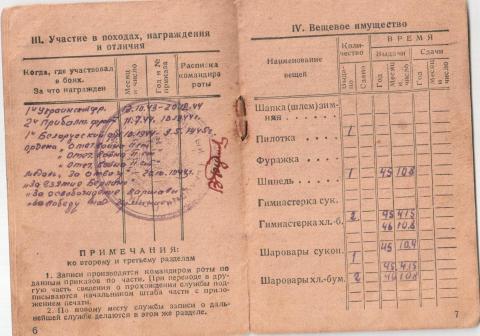 III. Участие в походах, награждения
и отличия
Когда, где участвовал
в боях.
За что награжден
Месяц
и число
Год и №
приказа
Расписка
командира
роты
1й Украинский фр. 10.43-20.12.44
2й Прибалт. фронт 11.7.44. 10.1944г.
1й Белорусский фр 10.1944г. 9.5.1945г.
ордена - Отеч. войны II ст
- Отеч. войны
- Отеч. войны
медаль, За отвагу 20.10.1943г.
"За взятие Берлина
"За освобождение Варшавы
"За победу над Германией
ПРИМЕЧАНИЯ:
ко второму и третьему разделам
1. Записи производятся командиром роты по
данным приказов по части. При переводе в дру-
гую часть сведения о прохождении службы под-
писываются начальником штаба части с прило-
жением печати.
2. По новому месту службы записи о даль-
нейшей службе делаются в этом же разделе.
6
IV. Вещевое имущество
Наименование
вещей
Коли-
чество
ВРЕМЯ
Выдачи
Сдачи
Выда-
но
Сдано
Год
Месяц
и число
Год
Месяц
и число
Шапка (шлем) зим-
няя
Пилотка 1
Фуражка
Шинель 1 45 10.8
Гимнастерка сук.
Гимнастерка хл.-б. 2 45 4.15
46 10.8
Шаровары сукон. 1 45 10.4
45 4.15
Шаровары хл.-бум. 2 46 10.8
7